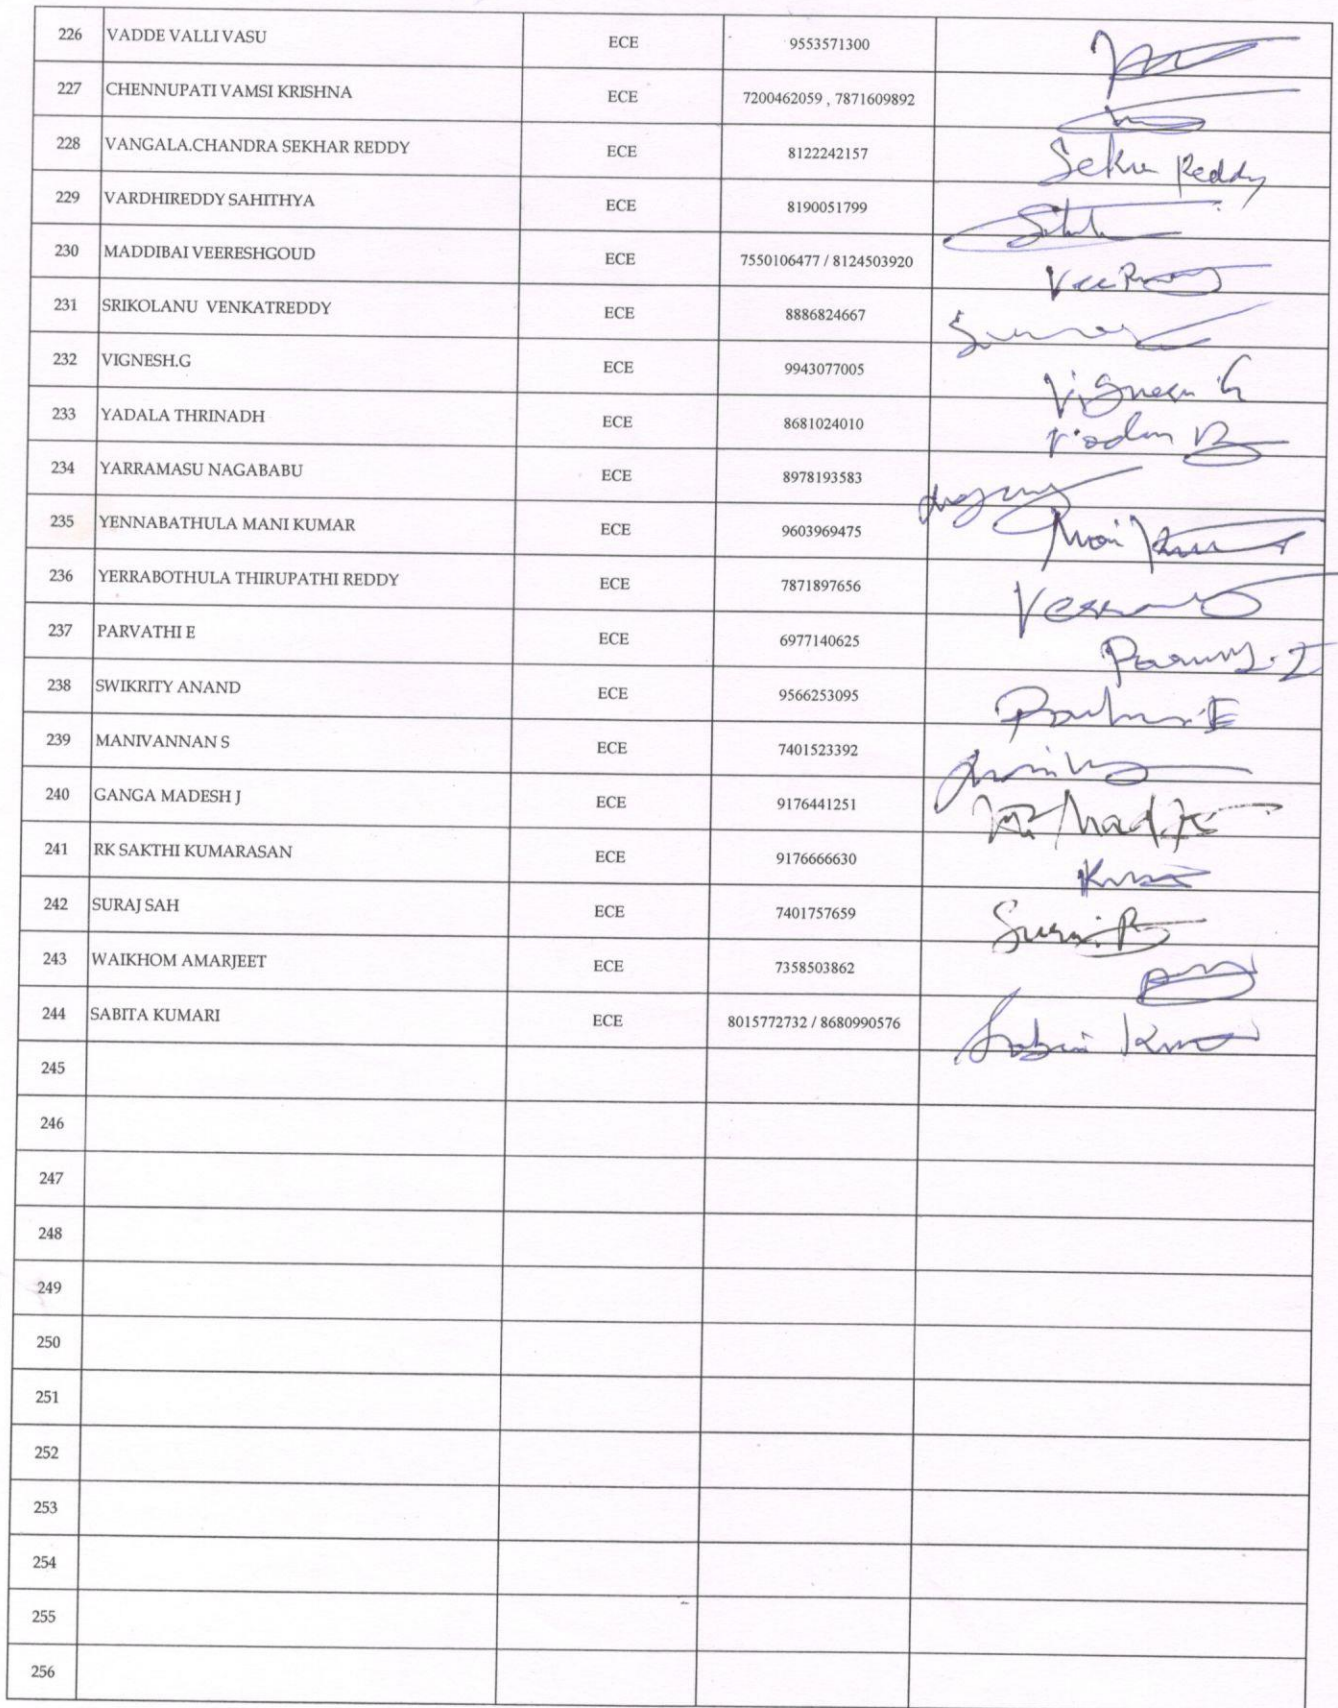 226 VADDE VALLI VASU ECE 9553571300
227 CHENNUPATI VAMSI KRISHNA ECE 7200462059 , 7871609892
228 VANGALA.CHANDRA SEKHAR REDDY ECE 8122242157 Reddy
229 VARDHIREDDY SAHITHYA ECE 8190051799
230 MADDIBAI VEERESHGOUD ECE 7550106477 / 8124503920
231 SRIKOLANU VENKATREDDY ECE 8886824667
232 VIGNESH.G ECE 9943077005
233 YADALA THRINADH ECE 8681024010
234 YARRAMASU NAGABABU ECE 8978193583
235 YENNABATHULA MANI KUMAR ECE 9603969475
236 YERRABOTHULA THIRUPATHI REDDY ECE 7871897656
237 PARVATHI E ECE 6977140625
238 SWIKRITY ANAND ECE 9566253095
239 MANIVANNAN S ECE 7401523392
240 GANGA MADESH J ECE 9176441251
241 RK SAKTHI KUMARASAN ECE 9176666630
242 SURAJ SAH ECE 7401757659
243 WAIKHOM AMARJEET ECE 7358503862
244 SABITA KUMARI ECE 8015772732 / 8680990576
245
246
247
248
249
250
251
252
253
254
255
256